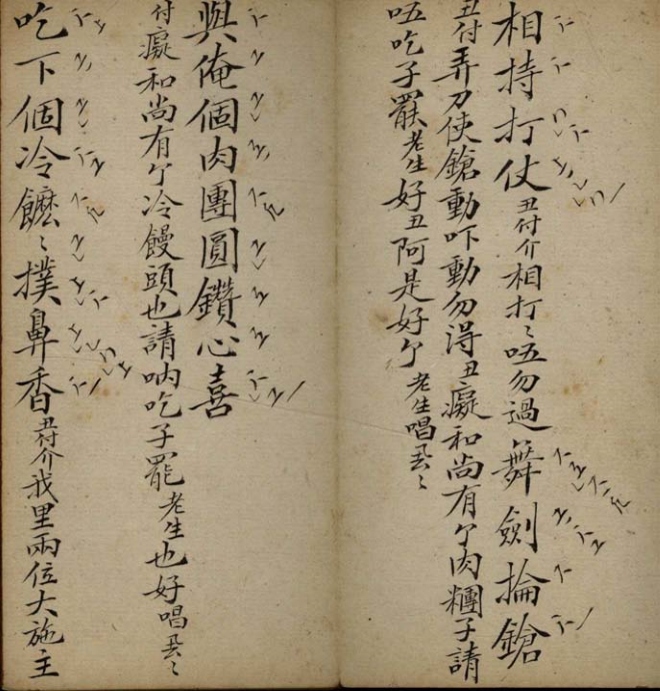 相持打仗丑付介相打〻唔勿過舞劍掄鎗
丑付弄刀使鎗動吓動勿淂丑癡和尚有亇肉糰子請
唔吃子罷老生好丑阿是好亇老生唱
與俺個肉團圓鑽心喜
付癡和尚有亇冷饅頭也請吶吃子罷老生也好唱
吃下個冷饝〻撲鼻香丑付介我里兩位大施主